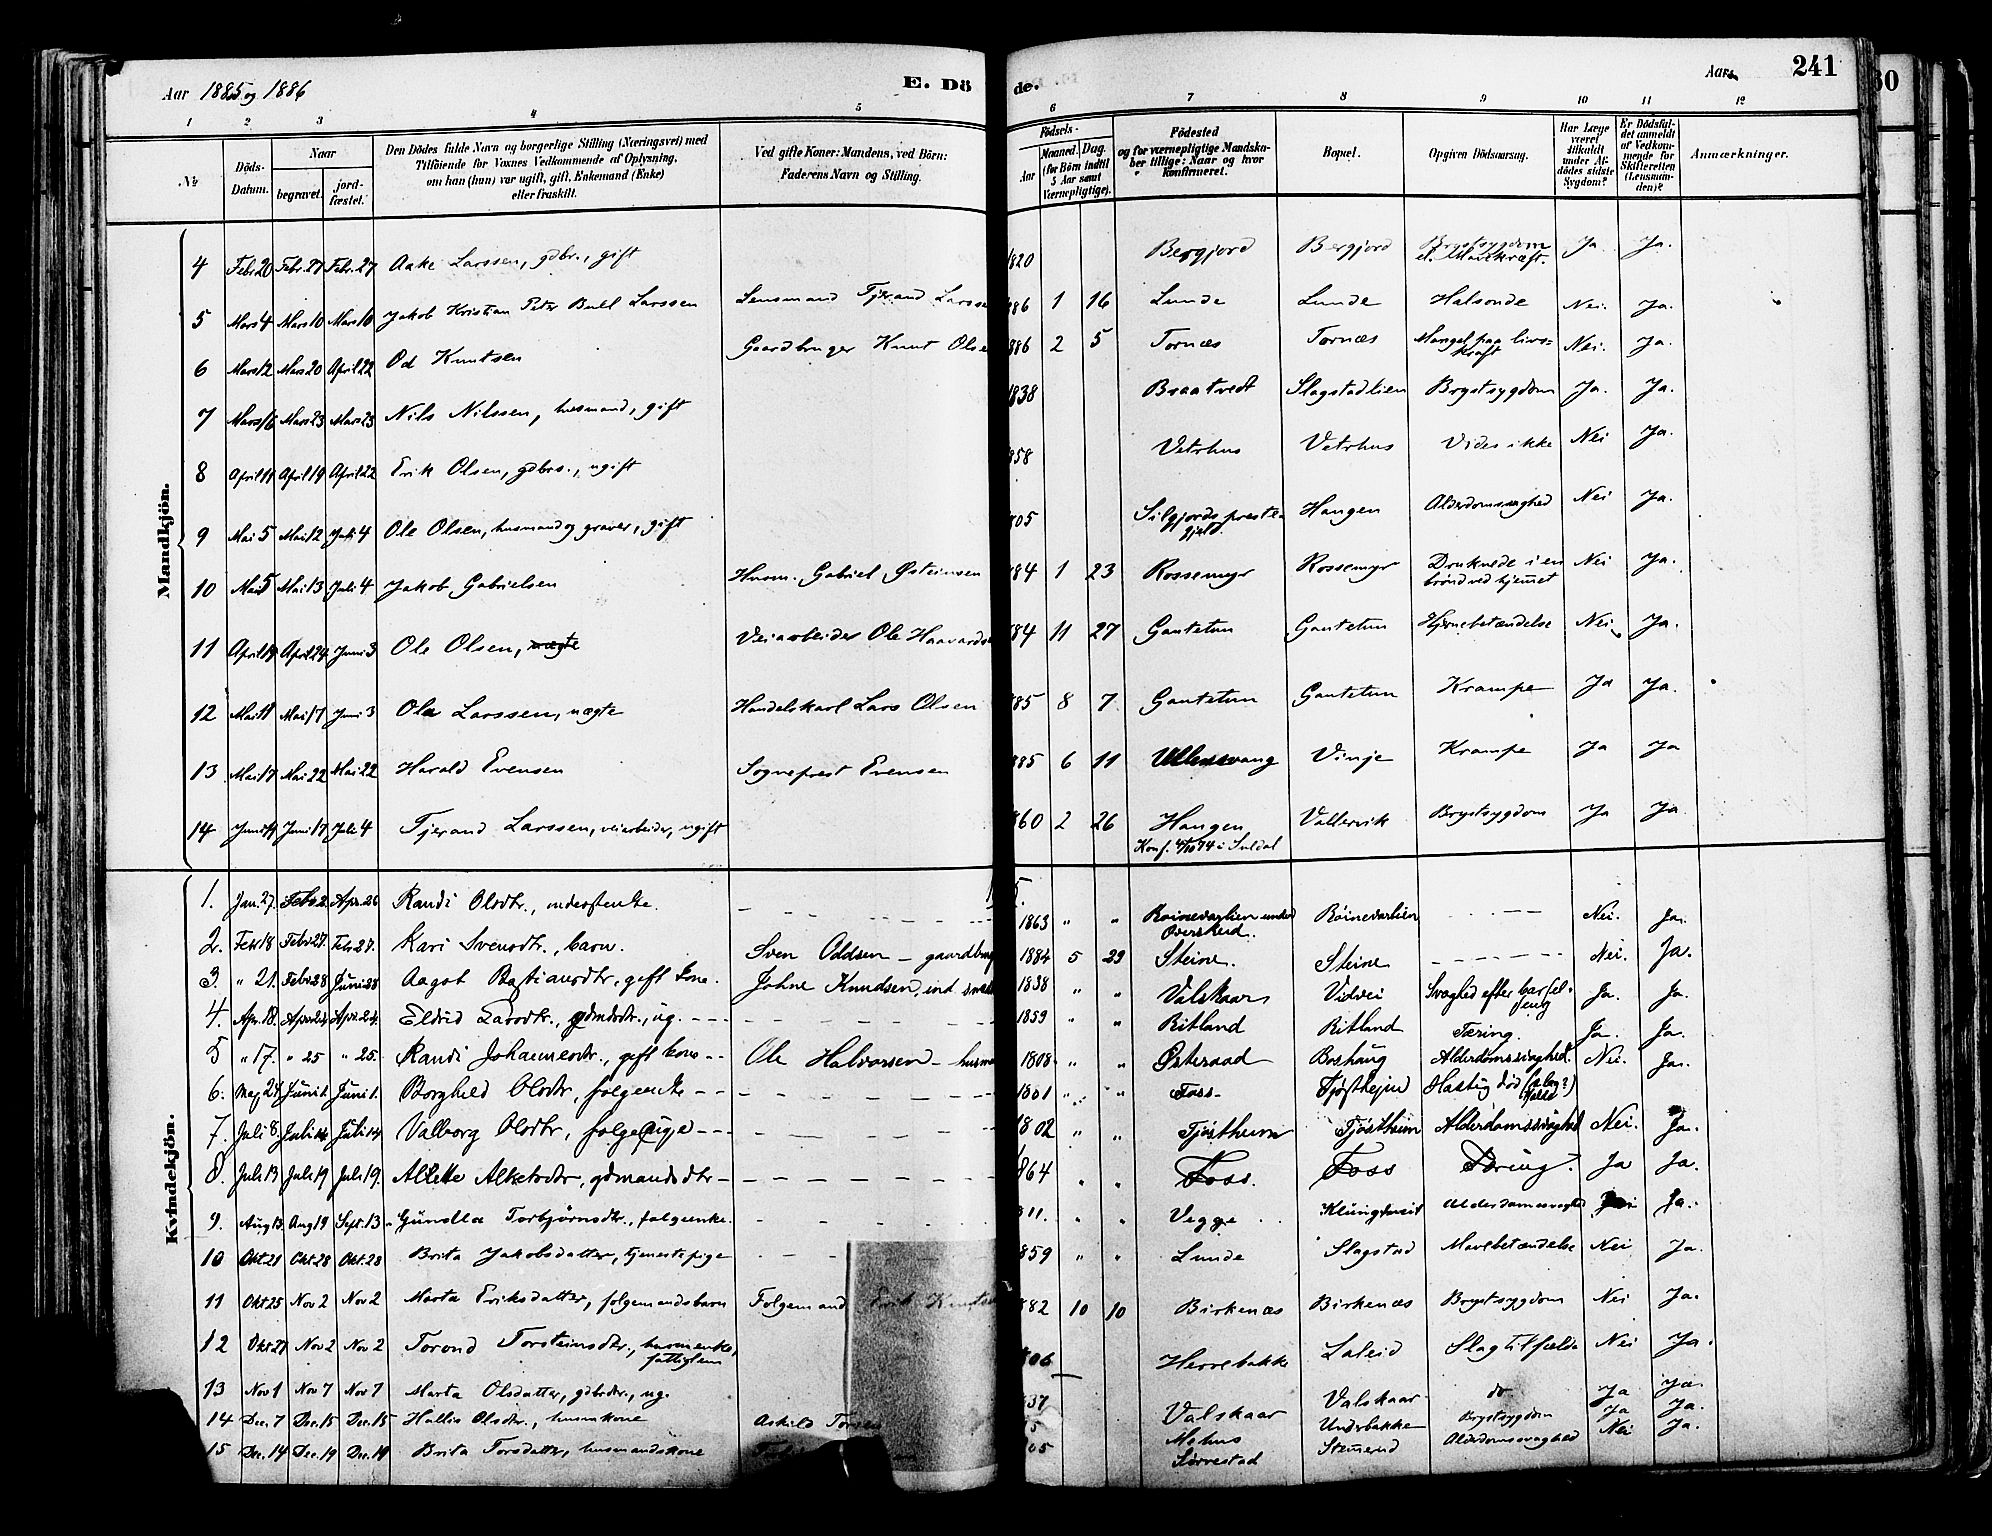 Aar 1885 og 1886
E. Dö
de.
Aar
241
1 2 3 4 5 6 7 8 9 10 11 12
№
Döds-Datum.
Naar
begravet.
jord-fæstet.
Den Dödes fulde Navn og borgerlige Stilling (Næringsvei) med
Tilföiende for Voxnes Vedkommende af Oplysning,
om han (hun) var ugift, gift, Enkemand (Enke)
eller fraskilt.
Ved gifte Koner: Mandens, ved Börn:
Faderens Navn og Stilling.
Födsels-
Aar
Maaned. Dag.
(for Börn indtil
5 Aar samt
Værnepligtige).
Födested
og for værnepligtige Mandska-
ber tillige: Naar og hvor
Konfirmeret.
Bopæl.
Opgiven Dödsaarsag.
Har Læge
været
tilkaldt
under Af-
dödes sidste
Sygdom?
Er Dödsfal-
det anmeldt
af Vedkom-
mende for
Skifteretten
(Lensman-
den)?
Anmærkninger.
Mandkjön.
4 Febr. 20 Febr. 27 Febr. 27 Aake Larssen, gdbr., gift 1820 Bergjord Bergjord Brystsygdom el. Mavekræft. Ja Ja.
5 Mars 4 Mars 10 Mars 10 Jakob Kristian Peter Bull Larssen Lensmand Tjerand Larsse 886 1 16 Lunde Lunde Halsonde Nei. Ja.
6 Mars 12 Mars 20 April 22 Od Knutsen Gaardbruger Knut Olse 886 2 5 Tornæs Tornæs Mangel paa livs-kraft Nei. Ja.
7 Mars 16 Mars 23 Mars 23 Nils Nilssen, husmand, gift 1838 Braatvedt Slagstadlien Brystsygdom Ja. Ja.
8 April 11 April 19 April 22 Erik Olsen, gdbrs., ugift 858 Vetrhus Vetrhus Vides ikke Nei Ja.
9 Mai 5 Mai 12 Juli 4 Ole Olsen, husmand og graver, gift 805 Silgjords preste-gjeld. Haugen Alderdomssvaghed Nei Ja.
10 Mai 5 Mai 13 Juli 4 Jakob Gabrielsen Husm. Gabriel Østeinsen 84 1 23 Rossemyr Rossemyr Druknede i en brønd ved hjemmet Nei Ja.
11 April 19 April 24 Juni 3 Ole Olsen, ægte Veiarbeider Ole Haavards 84 11 27 Gautetun Gautetun Hjernebetændelse Nei. Ja.
12 Mai 11 Mai 17 Juni 3 Ola Larssen, uægte Handelskarl Lars Olsen 885 8 7 Gautetun Gautetun Krampe Ja Ja.
13 Mai 17 Mai 22 Mai 22 Harald Evensen Sogneprest Evensen 885 6 11 Ullensvang Vinje Krampe Ja Ja
14 Juni 11 Juni 17 Juli 4 Tjerand Larssen, veiarbeider, ugift 860 2 26 Haugen Konf. 4/10 74 i Suldal Vallervik Brystsygdom Ja Ja.
Kvindekjön.
1. Jan. 27. Febr. 2. Apr. 26 Randi Olsdtr., inderstenke. 1863 " " Roinevarlien under Overskeid. Röinevarlien Nei. Ja.
2. Febr. 18 Febr. 27. Febr. 27. Kari Svensdtr., barn. Sven Oddsen - gaardbrug 1884 5 29 Steine. Steine Nei. Ja.
3. " 21. Febr. 28 Juni 28 Aagot Bastiansdtr, gift kone. Johne Knudsen, ind 1838 " " Valskaar Vidvei Svaghed efter barsel-seng Ja. Ja.
4. Apr. 18. Apr. 24 Apr. 24. Eldrid Larsdtr., gdmdsdtr., ug. 1859 " " Ritland Ritland Tæring. Ja. Ja.
5 " 17. " 25 " 25. Randi Johannesdtr., gift kone Ole Halvorsen - husm 1808 " " Østeraad Boshaug Alderdomssvaghed. Nei. Ja.
6. Maj 24 Juni 1 Juni 1. Borghild Olsdtr, folgeenke 1801 " " Foss. Tjøsthejm Hastig død (slag?)
7. Juli 8. Juli 14. Juli 14 Valborg Olsdtr, folgepige 1802 " " Tjøstheim Tjøstheim Alderdomssvaghed Nei. Ja.
8. Juli 13 Juli 19 Juli 19. Allette Alketsdtr, gdmandsdtr 864 " " Foss. Foss Tæring. Ja Ja.
9. Aug 13 Aug 19 Sept. 13 Gunella Torbjørnsdtr., folgeenke. 811. " " Vegge Klungtveit Alderdomssvaghed Ja.
10 Okt. 21 Okt. 28 Okt. 28 Brita Jakobsdatter, tjenestepige 859 " " Lunde Slagstad Mavebetændelse Nei Ja.
11 Okt 25 Nov 2 Nov 2 Marta Eriksdatter, folgemandsbarn Folgemand Erik Knuts 882 10 10 Birkenæs Birkenæs Brystsygdom Nei Ja.
12 Okt 27 Nov 2 Nov 2 Torond Torsteinsdtr., husmenke, fattiglem 806 Herrebakke Laleid Slagtilfælde Nei Ja.
13 Nov 1 Nov 7 Nov 7 Marta Olsdatter, gdbrdtr., ug. 37 Valskaar Valskaar do Ja Ja.
14 Dec. 7 Dec. 15 Dec. 15 Hallis Olsdtr., husmkone Askild Torse 5 Mohus Underbakke Brystsygdom Ja Ja.
15 Dec. 14 Dec. 19 Dec. 19 Brita Torsdatter, husmandskone 805 Størrestad Stemerud Alderdomssvaghed Nei Ja.